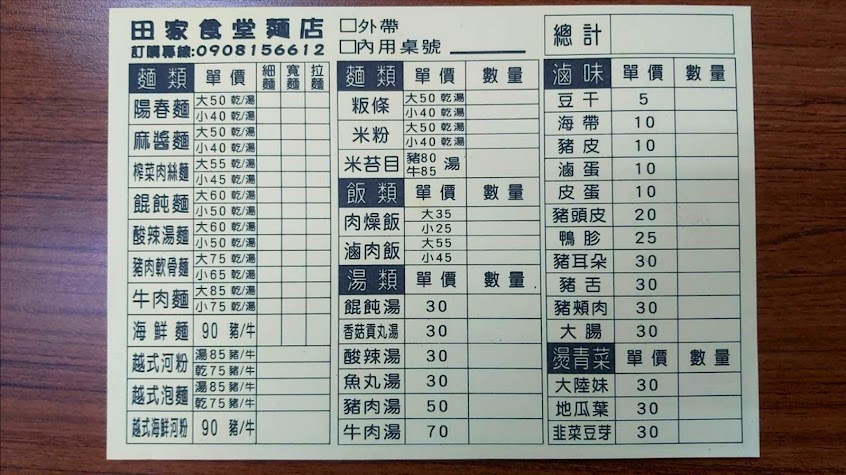 田家食堂麵店
訂購專線:0908156612
□外帶
□內用桌號
總計
麵類 單價 細麵 寬麵 拉麵
陽春麵 大50 乾/湯
小40 乾/湯
麻醬麵 大50 乾/湯
小40 乾/湯
榨菜肉絲麵 大55 乾/湯
小45 乾/湯
餛飩麵 大60 乾/湯
小50 乾/湯
酸辣湯麵 大60 乾/湯
小50 乾/湯
豬肉軟骨麵 大75 乾/湯
小65 乾/湯
牛肉麵 大85 乾/湯
小75 乾/湯
海鮮麵 90 豬/牛
越式河粉 湯85 豬/牛
乾75 豬/牛
越式泡麵 湯85 豬/牛
乾75 豬/牛
越式海鮮河粉 90 豬/牛
麵類 單價 數量
粄條 大50 乾湯
小40 乾湯
米粉 大50 乾湯
小40 乾湯
米苔目 豬80 湯
牛85
飯類 單價 數量
肉燥飯 大35
小25
滷肉飯 大55
小45
湯類 單價 數量
餛飩湯 30
香菇貢丸湯 30
酸辣湯 30
魚丸湯 30
豬肉湯 50
牛肉湯 70
滷味 單價 數量
豆干 5
海帶 10
豬皮 10
滷蛋 10
皮蛋 10
豬頭皮 20
鴨胗 25
豬耳朵 30
豬舌 30
豬頰肉 30
大腸 30
燙青菜 單價 數量
大陸妹 30
地瓜葉 30
韭菜豆芽 30